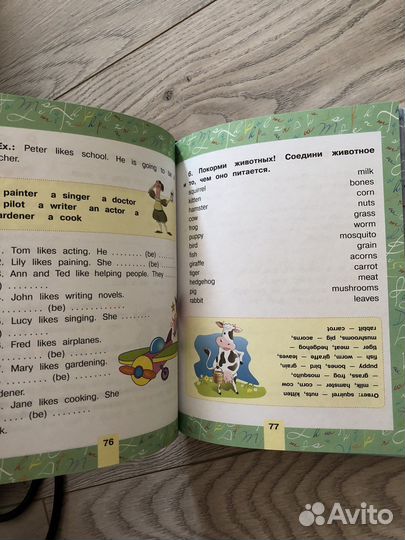 Ex.: Peter likes school. He is going to be a
cher.
painter a singer a doctor
pilot a writer an actor a
ardener a cook
1. Tom likes acting. He . . . . . . . . (be) . . . . . . . .
2. Lily likes paining. She . . . . . . . . (be) . . . . . . . .
3. Ann and Ted like helping people. They
. . . . . . . . (be) . . . . . . . .
John likes writing novels.
. . . . . . . . (be) . . . . . . . .
Lucy likes singing. She . . . . . . . .
Fred likes airplanes.
(be) . . . . . . . .
Mary likes gardening.
(be)
dener.
Jane likes cooking. She
(be)
k.
76
6. Покорми животных! Соедини животное
и то, чем оно питается.
squirrel milk
kitten bones
hamster corn
cow nuts
frog grass
puppy worm
bird mosquito
fish grain
giraffe acorns
tiger carrot
hedgehog meat
pig mushrooms
rabbit leaves
Ответ: squirrel — nuts, kitten
— milk, hamster — corn, cow
— grass, frog — mosquito,
puppy — bones, bird — grain,
fish — worm, giraffe — leaves,
tiger — meat, hedgehog —
mushrooms, pig — acorns,
rabbit — carrot
77
Avito